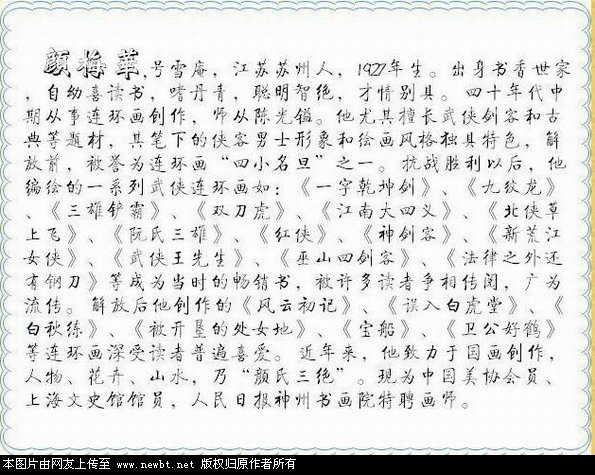 颜梅华,号雪庵,江苏苏州人,1927年生。出身书香世家
,自幼喜读书,嗜丹青,聪明智绝,才情别具。四十年代中
期从事连环画创作,师从陈光镒。他尤其擅长武侠剑客和古
典等题材,其笔下的侠客男士形象和绘画风格独具特色,解
放前,被誉为连环画“四小名旦”之一。抗战胜利以后,他
编绘的一系列武侠连环画如:《一字乾坤剑》、《九纹龙》
、《三雄铲霸》、《双刀虎》、《江南大四义》、《北侠草
上飞》、《阮氏三雄》、《红侠》、《神剑客》、《新荒江
女侠》、《武侠王先生》、《巫山四剑客》、《法律之外还
有钢刀》等成为当时的畅销书,被许多读者争相传阅,广为
流传。解放后他创作的《风云初记》、《误入白虎堂》、《
白秋练》、《被开垦的处女地》、《宝船》、《卫公好鹤》
等连环画深受读者普遍喜爱。近年来,他致力于国画创作,
人物、花卉、山水,乃“颜氏三绝”。现为中国美协会员、
上海文史馆馆员,人民日报神州书画院特聘画师。
本图片由网友上传至 www.newbt.net 版权归原作者所有